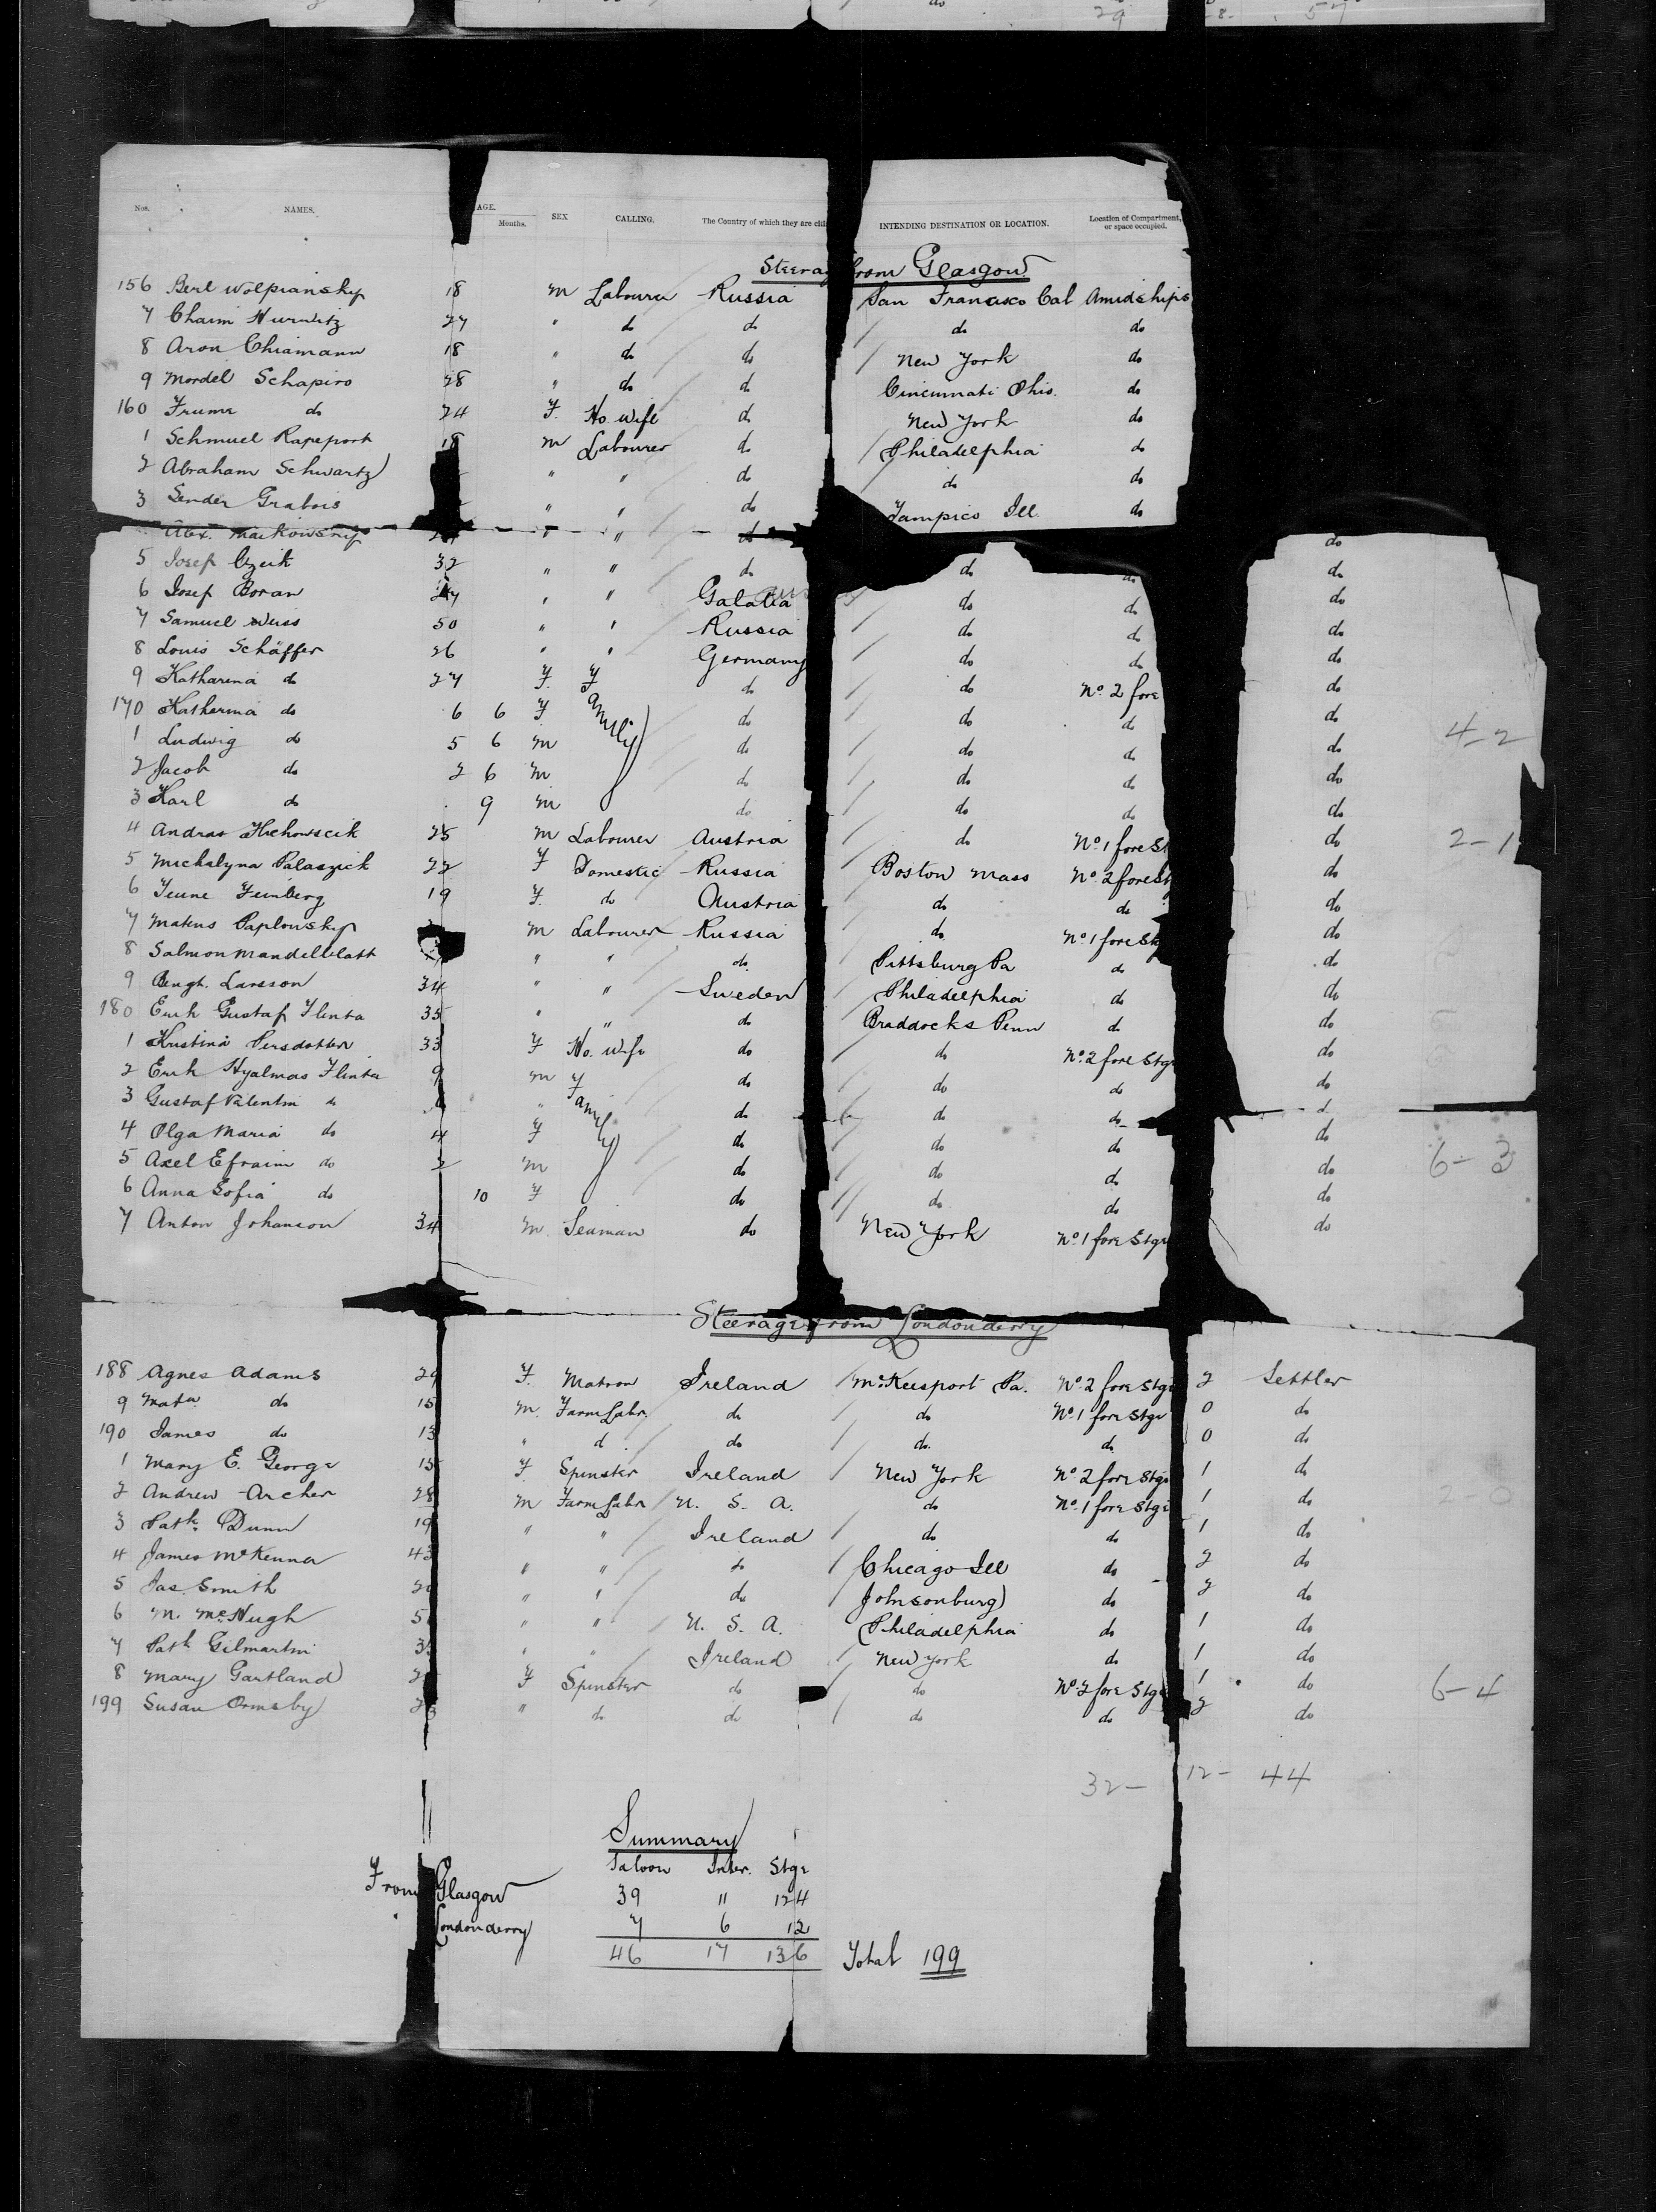 do 29 28- 57
Nos. NAMES. AGE. Months. SEX CALLING. The Country of which they are INTENDING DESTINATION OR LOCATION. Location of Compartment, or space occupied.
Steerag from Glasgow
156 Berl Wolpiansky 18 m Labourer Russia San Francisco Cal Amidships
7 Chaim Hurwitz 27 " do do do do
8 Aron Chiamann 18 " do do New York do
9 Mordel Schapiro 28 " do do Cincinnati Ohio. do
160 Fruma do 24 F. Ho. wife do New York do
1 Schmuel Rapeport 18 m Labourer do Philadelphia do
2 Abraham Schwartz " " do do do
3 Sender Grabois " " do Tampico Ill. do
Alex. Markowsky " " do do
5 Josef 32 " " do do do do
6 Josef Boran 27 " " Galatia do do do
7 Samuel Weiss 50 " " Russia do do do
8 Louis Schäffer 26 " " Germany do do do
9 Katharina do 27 F. Family do do No. 2 fore do
170 Katharina do 6 6 F do do do do
1 Ludwig do 5 6 m do do do do 4-2
2 Jacob do 2 6 m do do do do
3 Karl do 9 m do do do do
4 Andras 25 m Labourer Austria do No. 1 fore St do 2-1
5 Michalyna Palaszick 22 F Domestic Russia Boston Mass No. 2 fore St do
6 Feinberg 19 F. do Austria do do do
7 Mateus Paplowsky m Labourer Russia do No. 1 fore St do
8 Salmon Mandelblatt " " do Pittsburg Pa do do
9 Bengt. Larsson 34 " " Sweden Philadelphia do do
180 Erik Gustaf Flinta 35 " " do Braddocks Penn do do
1 Kristina Persdotter 33 F Ho. Wife do do No. 2 fore Stge do
2 Erik Hjalmar Flinta 9 m Family do do do do
3 Gustaf Valentin do " do do do do
4 Olga Maria do 4 F do do do do
5 Axel Efraim do 2 m do do do do 6-3
6 Anna Sofia do 10 F do do do do
7 Anton Johanson 34 m. Seaman do New York No. 1 fore Stge do
Steerage from Londonderry
188 Agnes Adams 29 F. Matron Ireland McKeesport Pa. No. 2 fore Stge 2 Settler
9 do 15 m. Farm Labr. do do No. 1 fore Stge 0 do
190 James do 13 " d do do. do 0 do
1 Mary E. George 15 F. Spinster Ireland New York No. 2 fore Stge 1 do
2 Andrew Archer 28 m Farm Labr U. S. A. do No. 1 fore Stge 1 do 2-0
3 Patk. Dunn 19 " " Ireland do do 1 do
4 James McKenna 43 " " do Chicago Ill do 2 do
5 Jas. Smith 2 " " do Johnsonburg do 2 do
6 M. McHugh 5 " " U. S. A. Philadelphia do 1 do
7 Patk Gilmartin 3 " " Ireland New York do 1 do
8 Mary Gartland 2 F Spinster do do No. 2 fore Stge 1 do 6-4
199 Susan Ormsby 2 " do do do do 2 do
32- 12- 44
Summary
Saloon Inter. Stge
From Glasgow 39 11 124
Londonderry 7 6 12
46 17 136 Total 199